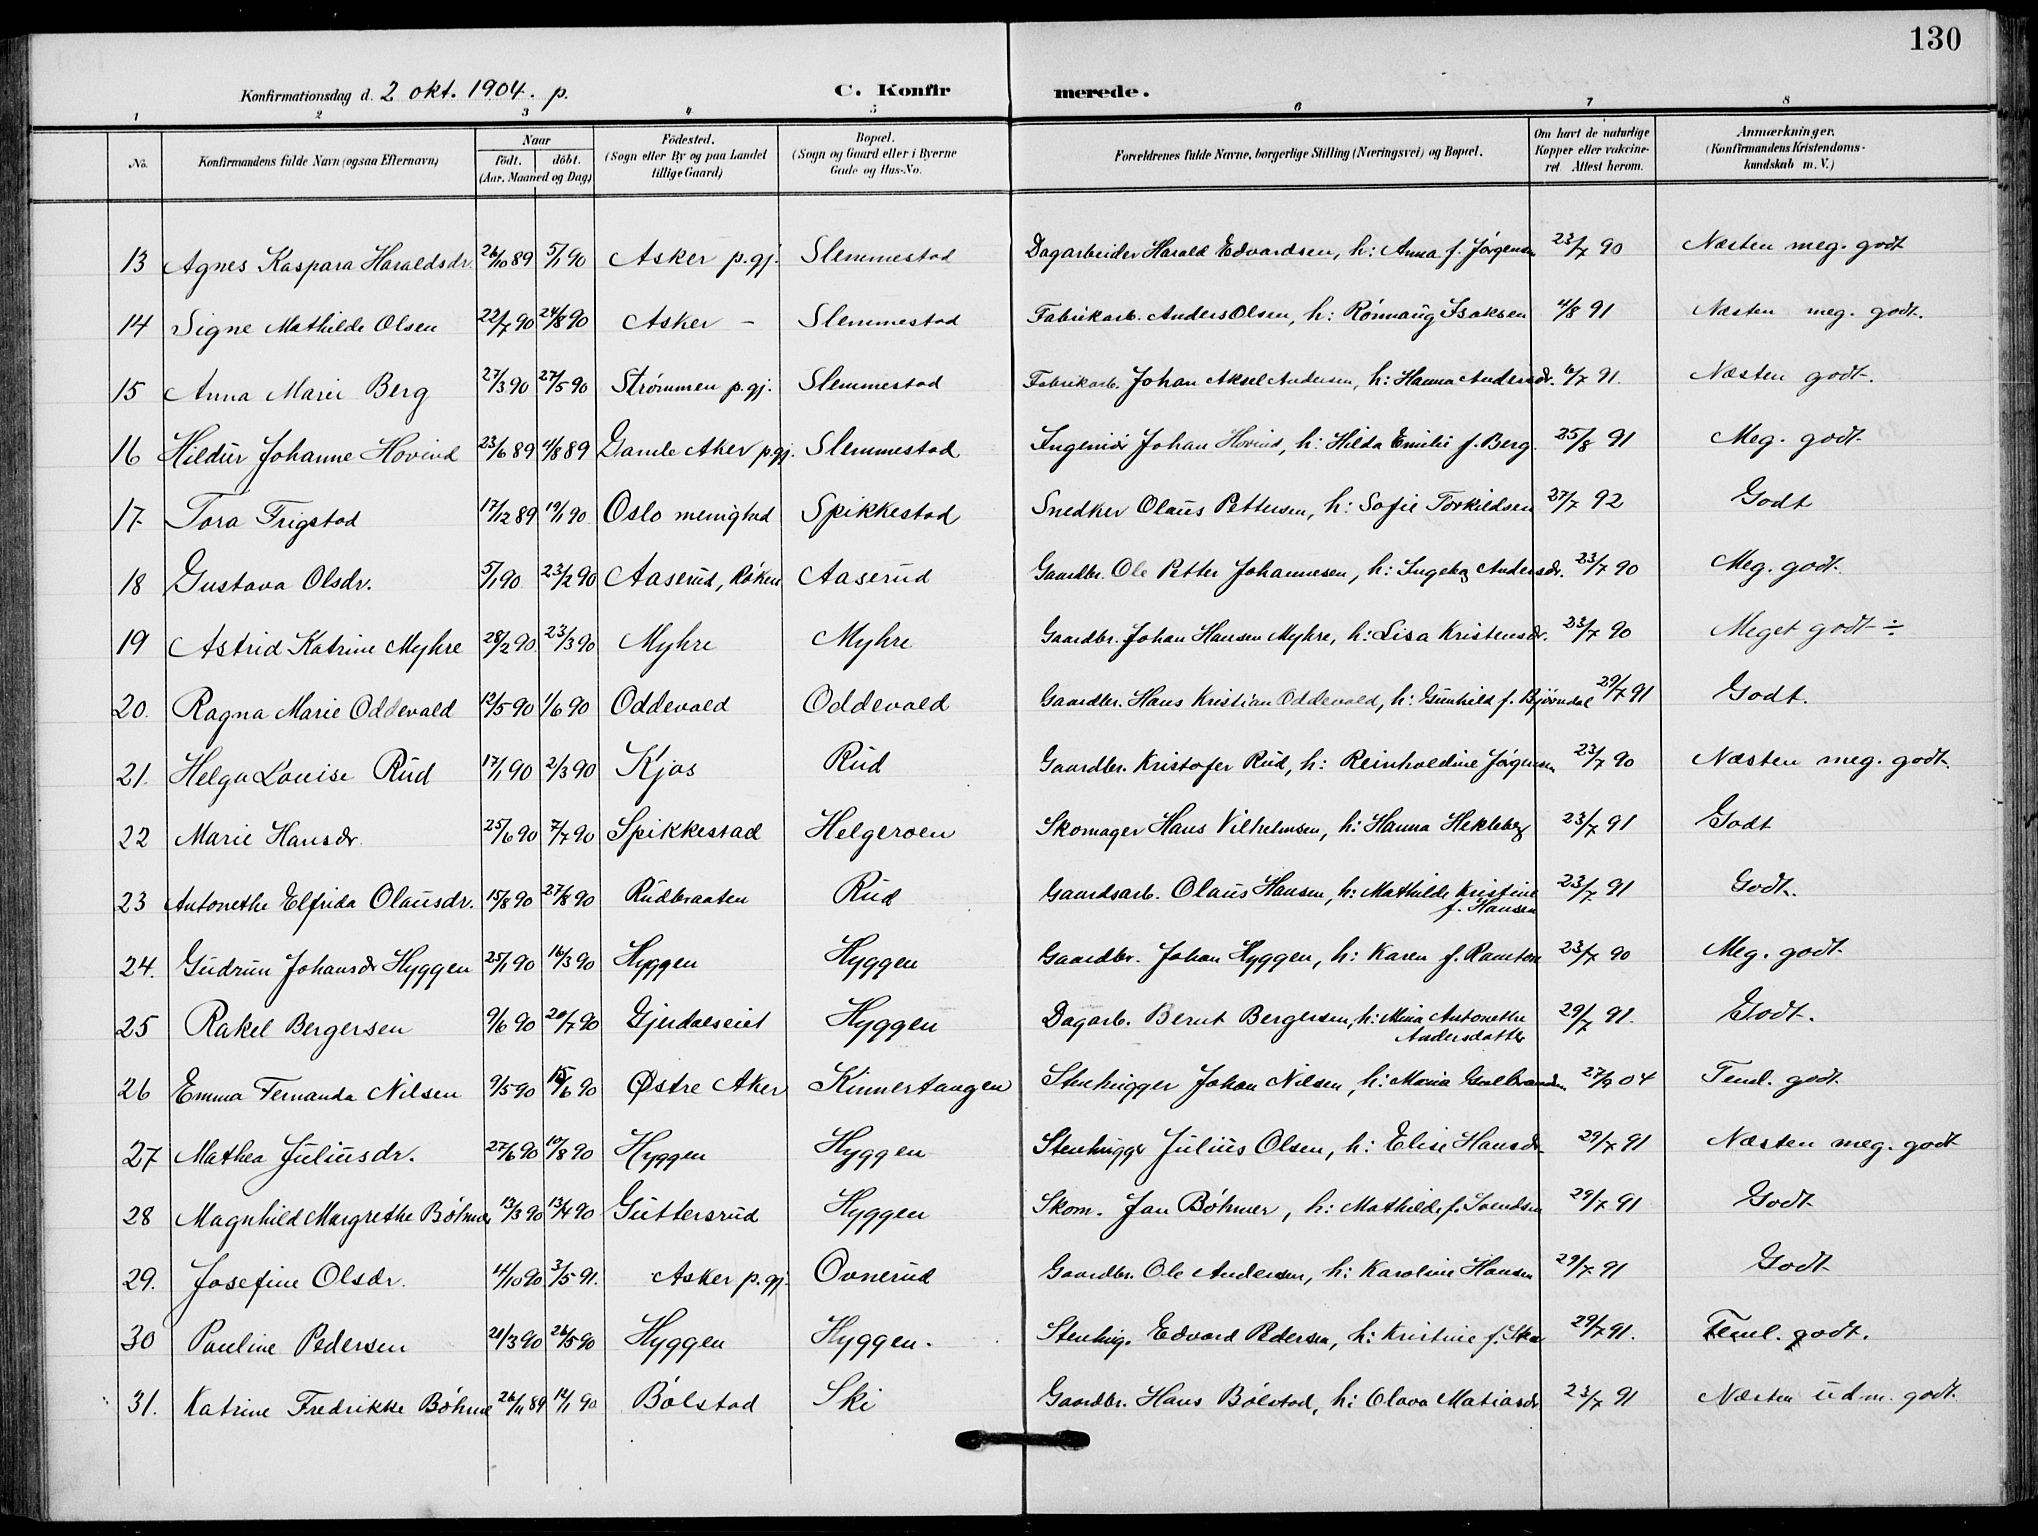 130
Konfirmationsdag d. 2 okt. 1904. p. C. Konfirmerede.
1 2 3 4 5 6 7 8
No. Konfirmandens fulde Navn (ogsaa Efternavn) Naar födt. döbt. (Aar, Maaned og Dag) Födested. (Sogn eller By og paa Landet tillige Gaard) Bopæl. (Sogn og Gaard eller i Byerne Gade og Hus-No. Forældrenes fulde Navne, borgerlige Stilling (Næringsvei) og Bopæl. Om havt de naturlige Kopper eller vakcineret. Attest herom. Anmærkninger. (Konfirmandens Kristendomskundskab m. V.)
13 Agnes Kaspara Haraldsdr. 26/10 89 5/1 90 Asker p.gj. Slemmestad Dagarbeider Harald Edvardsen, h: Anna f. Jørgensen 23/7 90 Næsten meg. godt
14 Signe Mathilde Olsen 22/7 90 24/8 90 Asker – Slemmestad Fabrikarb. Anders Olsen, h: Rønnaug Isaksen 4/8 91 Næsten meg. godt.
15 Anna Marie Berg 27/3 90 27/5 90 Strømmen p.gj. Slemmestad Fabrikarb. Johan Aksel Andersen, h: Hanna Andersdr. 6/7 91. Næsten godt.
16 Hildur Johanne Hovind 23/6 89 4/8 89 Gamle Aker p.gj. Slemmestad Ingeniør Johan Hovind, h: Hilda Emilie f. Berg 25/8 91 Meg. godt
17. Tora Frigstad 17/12 89 19/1 90 Oslo menighed Spikkestad Snedker Olaus Pettersen, h: Sofie Torkildsen 27/7 92 Godt
18 Gustava Olsdr. 5/1 90 23/2 90 Aaserud, Røken Aaserud Gaardbr. Ole Petter Johannesen, h: Ingebg Andersdr. 23/7 90 Meg. godt
19 Astrid Katrine Myhre 28/2 90 23/3 90 Myhre Myhre Gaardbr. Johan Hansen Myhre, h: Lisa Kristensdr. 23/7 90 Meget godt ÷
20. Ragna Marie Oddevald 12/5 90 1/6 90 Oddevald Oddevald Gaardbr. Hans Kristian Oddevald, h: Gunhild f. Bjørndal 29/7 91 Godt.
21. Helga Louise Rud 17/1 90 2/3 90 Kjos Rud Gaardbr. Kristofer Rud, h: Reinholdine Jørgensen 23/7 90 Næsten meg. godt
22 Marie Hansdr. 25/6 90 7/7 90 Spikkestad Helgeroen Skomager Hans Vilhelmsen, h: Hanna Hekleberg 23/7 91 Godt
23 Antonethe Elfrida Olausdr. 15/8 90 27/8 90 Rudbraaten Rud Gaardsarb. Olaus Hansen, h: Mathilde Kristine f. Hansen 23/7 91 Godt.
24. Gudrun Johansdr Hyggen 25/1 90 16/3 90 Hyggen Hyggen Gaardbr. Johan Hyggen, h: Karen f. Ramton 23/7 90 Meg. godt
25 Rakel Bergersen 9/6 90 20/7 90 Gjerdalseiet Hyggen Dagarb. Bernt Bergersen, h: Mina Antonethe Andersdatter 29/7 91. Godt.
26 Emma Fernanda Nilsen 9/5 90 15/6 90 Østre Aker Kinnertangen Stenhugger Johan Nilsen, h: Maria 27/9 04 Teml. godt
27 Mathea Juliusdr. 27/6 90 10/8 90 Hyggen Hyggen Stenhugger Julius Olsen, h: Elise Hansdr. 29/7 91 Næsten meg. godt
28 Magnhild Margrethe Bøhmer 13/3 90 13/4 90 Guttersrud Hyggen Skom. Jan Bøhmer, h: Mathilde f. Svendsen 29/7 91 Godt
29. Josefine Olsdr. 14/10 90 3/5 91. Asker p.gj. Ovnerud Gaardbr. Ole Andersen, h: Karoline Hansen 29/7 91 Godt
30 Pauline Pedersen 21/3 90 26/5 90 Hyggen Hyggen. Stenhug. Edvard Pedersen, h: Kristine f. 29/7 91. Teml. godt.
31. Katrine Fredrikke Bøhmer 26/11 89 12/1 90 Bølstad Ski Gaardbr. Hans Bølstad, h: Olava Matiasdr. 23/7 91 Næsten udm. godt